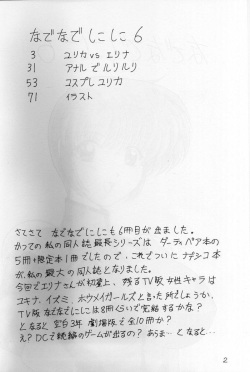 なでなでしこしこ 6
3 ユリカ vs エリナ
31 アナルでルリルリ
53 コスプレユリカ
71 イラスト
さてさて なでなでしこしこも6冊目が出ました。
かつての私の同人誌最長シリーズは ダーティペア本の
5冊+限定本1冊でしたので、これでついにナデシコ本
が、私の最大の同人誌となりました。
今回でエリナさんが初登場、残るTV版女性キャラは
ユキナ、イズミ、ホウメイガールズと言った所でしょうか。
TV版なでなでしこしこは8冊くらいで完結するかな?
となると 空白3年 劇場版で全10冊か?
え?DCで続編のゲームが出るの? あうま… となると…
2